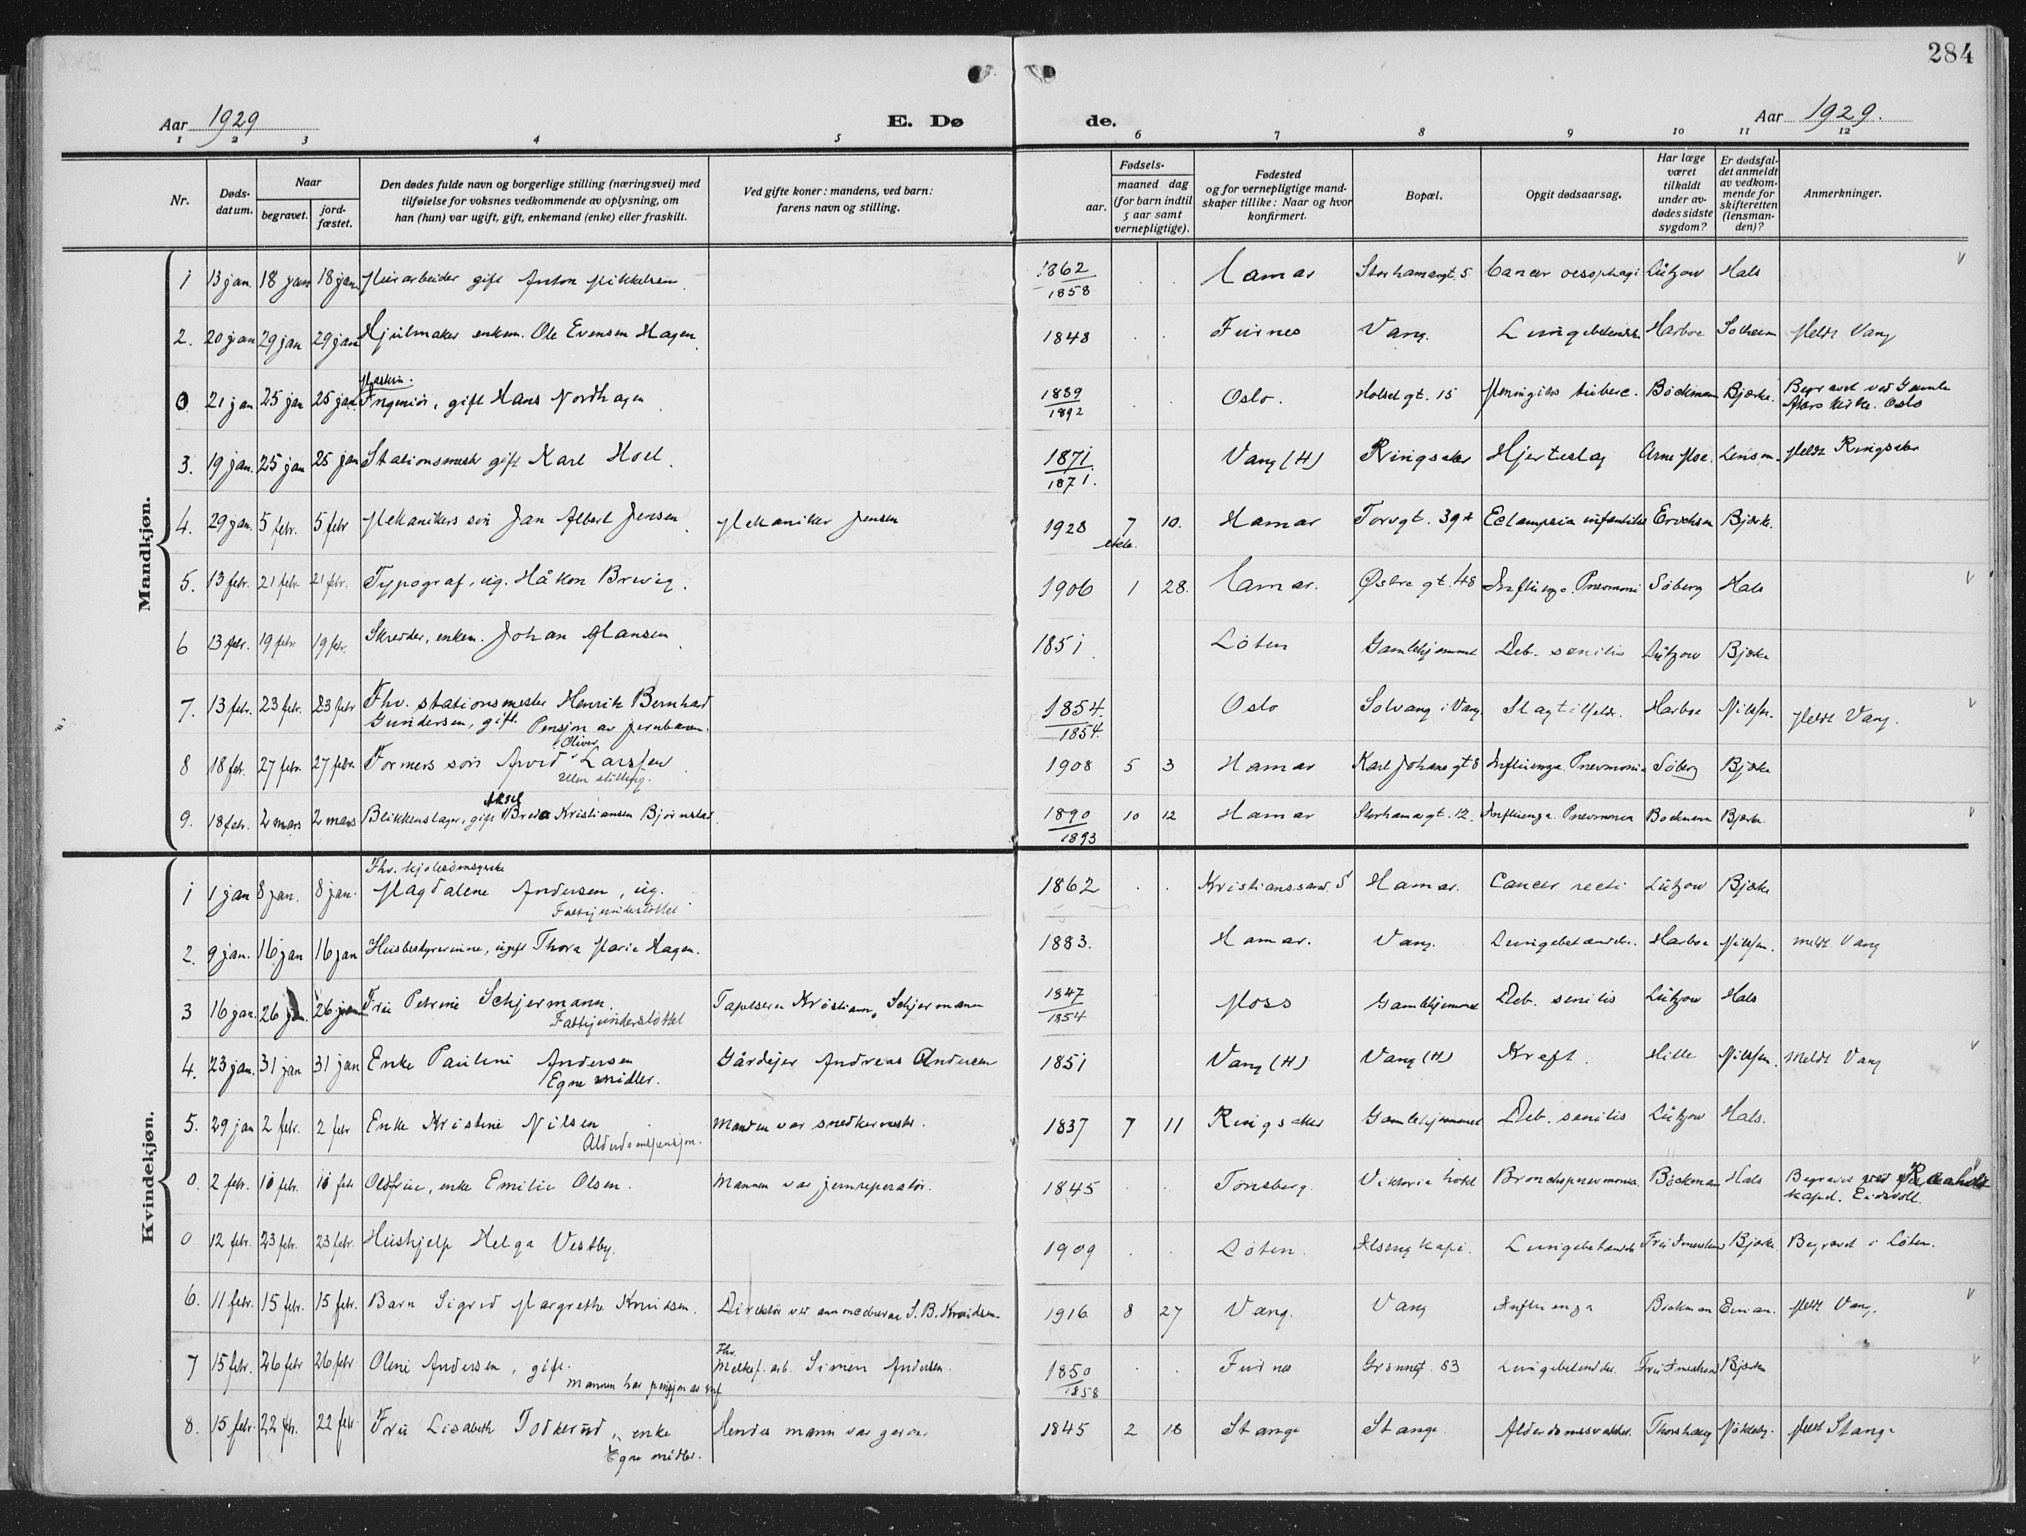 284
Aar 1929
E. Dø
de.
Aar 1929.
1 2 3 4 5 6 7 8 9 10 11 12
Nr.
Døds-
datum.
Naar
begravet.
jord-
fæstet.
Den dødes fulde navn og borgerlige stilling (næringsvei) med
tilføielse for voksnes vedkommende av oplysning, om
han (hun) var ugift, gift, enkemand (enke) eller fraskilt.
Ved gifte koner: mandens, ved barn:
farens navn og stilling.
Fødsels-
aar.
maaned dag
(for barn indtil
5 aar samt
vernepligtige).
Fødested
og for vernepligtige mand-
skaper tillike: Naar og hvor
konfirmert.
Bopæl.
Opgit dødsaarsag.
Har læge
været
tilkaldt
under av-
dødes sidste
sygdom?
Er dødsfal-
det anmeldt
av vedkom-
mende for
skifteretten
(lensman-
den)?
Anmerkninger.
Mandkjøn.
1 13 jan. 18 jan 18 jan Murarbeider gift Anton Mikkelsen. 1862/1858 Hamar Storhamargt. 5 Cancer oesophagi Lützow Hals
2. 20 jan 29 jan 29 jan Hjulmaker enkem. Ole Evensen Hagen. 1848 Furnes Vang. Harboe Solheim Meldt Vang
Maskin.
0 21 jan 25 jan 25 jan Ingeniør, gift Hans Nordhagen 1889/1892 Oslo. Holset gt. 15 Meningitis tuberc. Bøckman Bjerke. Begravet ved Gamle
Akers kirke. Oslo
3. 19 jan. 25 jan 25 jan Stationsmester gift Karl Hoel. 1871/1871. Vang (H) Ringsaker Hjerteslag Arne Moe. Lensm. Meldt Ringsaker
4. 29 jan. 5 febr. 5 febr Mekanikers søn Jan Albert Jensen Mekaniker Jensen 1928 7 10. Hamar Torvgt. 39 Eclampsia infantilis Bjerke.
5. 13 febr. 21 febr 21 febr. Typograf, ug. Håkon Brevig. 1906 1 28. Hamar. Østre gt. 48 Influenza. Pnevmoni Søberg Hals
6 13 febr. 19 febr 19 febr. Skredder, enkem. Johan Hansen. 1851. Løten Gamlehjemmet Deb. senilis Lützow Bjerke
7. 13 febr. 23 febr. 23 febr Fhv. stationsmester Henrik Bernhard
Gundersen, gift. Pensjon av jernbanen. 1854./1854. Oslo Solvang i Vang Slagtilfelde. Harboe Nilssen. Meldt Vang.
Oliver
8 18 febr. 27 febr. 27 febr. Formers søn Arvid Larssen. 1908 5 3 Hamar Karl Johans gt 8 Influenza. Pnevmonia Søberg Bjerke
Uten stilling.
Aksel
9. 18 febr. 2 mars 2 mars Blikkenslager, gift Kristiansen Bjørnstad. 1890/1893 10 12 Hamar Storhamargt. 12. Influenza. Pnevmonia Bøckmann Bjerke.
Kvindekjøn.
Fhv. kjolesømsyerske
1 1 jan 8 jan. 8 jan. Magdalene Andersen, ug. 1862 Kristianssand. S Hamar. Cancer recti Lützow Bjerke
Fattigunderstøttet
2. 9 jan. 16 jan 16 jan Husbestyrerinne, ugift Thora Marie Hagen. 1883. Hamar. Vang. Harboe Nilssen. Meldt Vang
3 16 jan. 26 jan. 26 jan Fru Petrine Schjermann. Tapetserer Kristian Schjermann 1847/1854 Moss Gamlehjemmet Deb. senilis Lützow Hals
Fattigunderstøttet
4. 23 jan. 31 jan 31 jan Enke Pauline Andersen Gårdejer Andreas Andersen 1851 Vang (H) Vang (H) Kreft. Hille Nilssen. Meldt Vang
Egne midler.
5. 29 jan 2 febr. 2 febr Enke Kristine Nilsen Manden var snedkermester. 1837 7 11 Ringsaker Gamlehjemmet Deb. senilis Lützow Hals.
Alderdomspensjon.
0. 2 febr. 10 febr. 10 febr Oldfrue, enke Emilie Olsen. Mannen var jernreperatør. 1845 Tønsberg. Viktoria hotel Bronchopnevmonia. Bøckman Hals Begravet ved Råholt
kapel. Eidsvoll
0 12 febr. 23 febr. 23 febr. Hushjelp Helga Vestby. 1909 Løten. Bjerke. Begravet i Løten.
6. 11 febr. 15 febr. 15 febr. Barn Sigrid Margrethe Knudsen. Direktør S. B. Knudsen. 1916 8 27 Vang. Vang Influenza Bøckman Meldt Vang.
Fhv.
7 15 febr. 26 febr 26 febr Oline Andersen, gift. Simen Andersen. 1850/1858 Furnes Grønnegt. 83 Bjerke
mannen har pensjon av
8. 15 febr. 22 febr. 22 febr. Fru Lisabeth Todkerud, enke Hendes mann var garver 1845 2 18 Stange Stange Alderdomssvakhet. Thorshaug Nökleby. Meldt Stange
Egne midler.